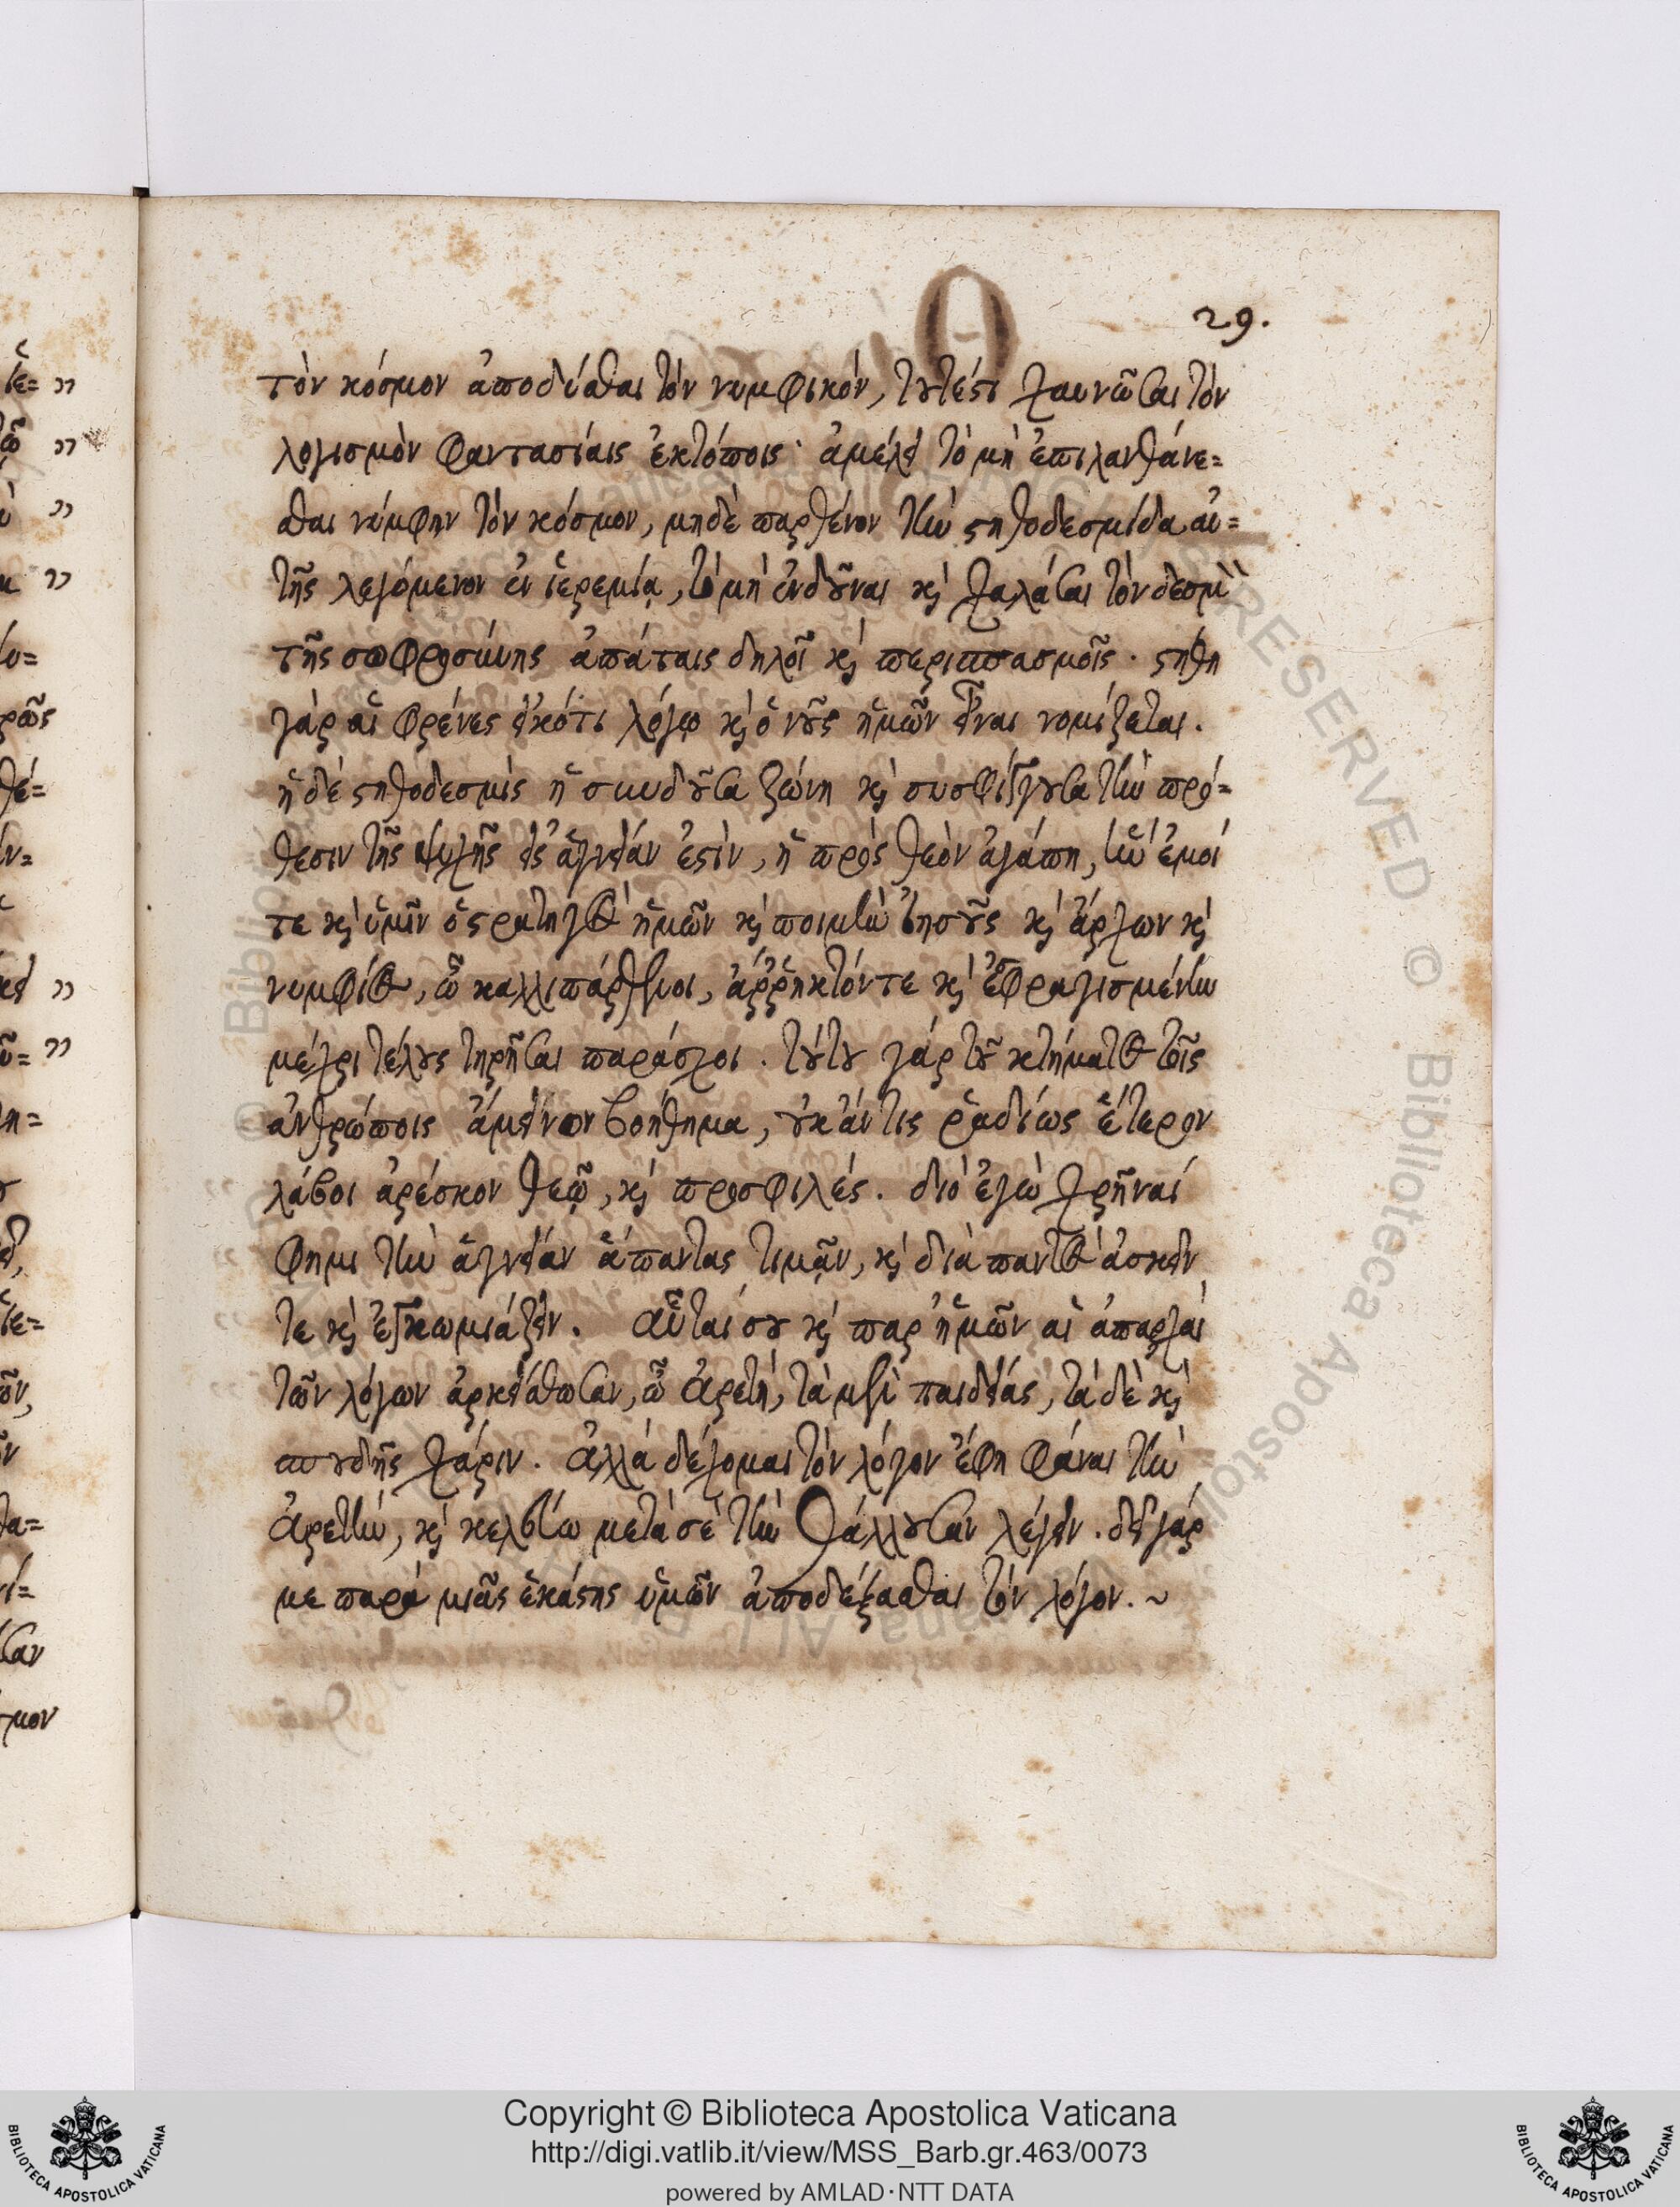 29.
τὸν κόσμον ἀποδύσασθαι τὸν νυμφικόν, τουτέστι χαυνῶσαι τὸν
λογισμὸν φαντασίαις ἐκτόποις· ἀμέλει τὸ μὴ ἐπιλανθάνε=
σθαι νύμφην τὸν κόσμον, μηδὲ παρθένον τὴν στηθοδεσμίδα αὐ=
τῆς λεγόμενον ἐν ἱερεμίᾳ, τὸ μὴ ἐνδοῦναι καὶ χαλάσαι τὸν δεσμὸν
τῆς σωφροσύνης ἀπάταις δηλοῖ καὶ περισπασμοῖς. στήθη
γὰρ αἱ φρένες εἰκότι λόγῳ καὶ ὁ νοῦς ἡμῶν εἶναι νομίζεται.
ἡ δὲ στηθοδεσμὶς ἡ συνδοῦσα ζώνη καὶ συσφίγγουσα τὴν πρό=
θεσιν τῆς ψυχῆς εἰς ἁγνείαν ἐστὶν, ἡ πρὸς θεὸν ἀγάπη, ἣν ἐμοί
τε καὶ ὑμῖν ὁ στρατηγὸς ἡμῶν καὶ ποιμὴν ἰησοῦς καὶ ἄρχων καὶ
νυμφίος, ὦ καλλιπάρθενοι, ἀῤῥηκτόν τε καὶ ἐσφραγισμένην
μέχρι τέλους τηρῆσαι παράσχοι. τούτου γὰρ τοῦ κτήματος τοῖς
ἀνθρώποις ἄμεινον βοήθημα, οὐκ ἄν τις ῥαδίως ἕτερον
λάβοι ἀρέσκον θεῷ, καὶ προσφιλές. διὸ ἐγὼ χρῆναί
φημι τὴν ἁγνείαν ἅπαντας τιμᾷν, καὶ διὰ παντὸς ἀσκεῖν
τε καὶ ἐγκωμιάζειν. αὗταί σου καὶ παρ' ἡμῶν αἱ ἀπαρχαὶ
τῶν λόγων ἀρκείσθωσαν, ὦ Ἀρετή, τὰ μὲν παιδείας, τὰ δὲ καὶ
σπουδῆς χάριν. Ἀλλὰ δέχομαι τὸν λόγον ἔφη φάναι τὴν
Ἀρετὴν, καὶ κελεύω μετὰ σὲ τὴν Θάλλουσαν λέγειν. δεῖ γάρ
με παρὰ μιᾶς ἑκάστης ὑμῶν ἀποδέξασθαι τὸν λόγον. ~
Copyright © Biblioteca Apostolica Vaticana
http://digi.vatlib.it/view/MSS_Barb.gr.463/0073
powered by AMLAD·NTT DATA